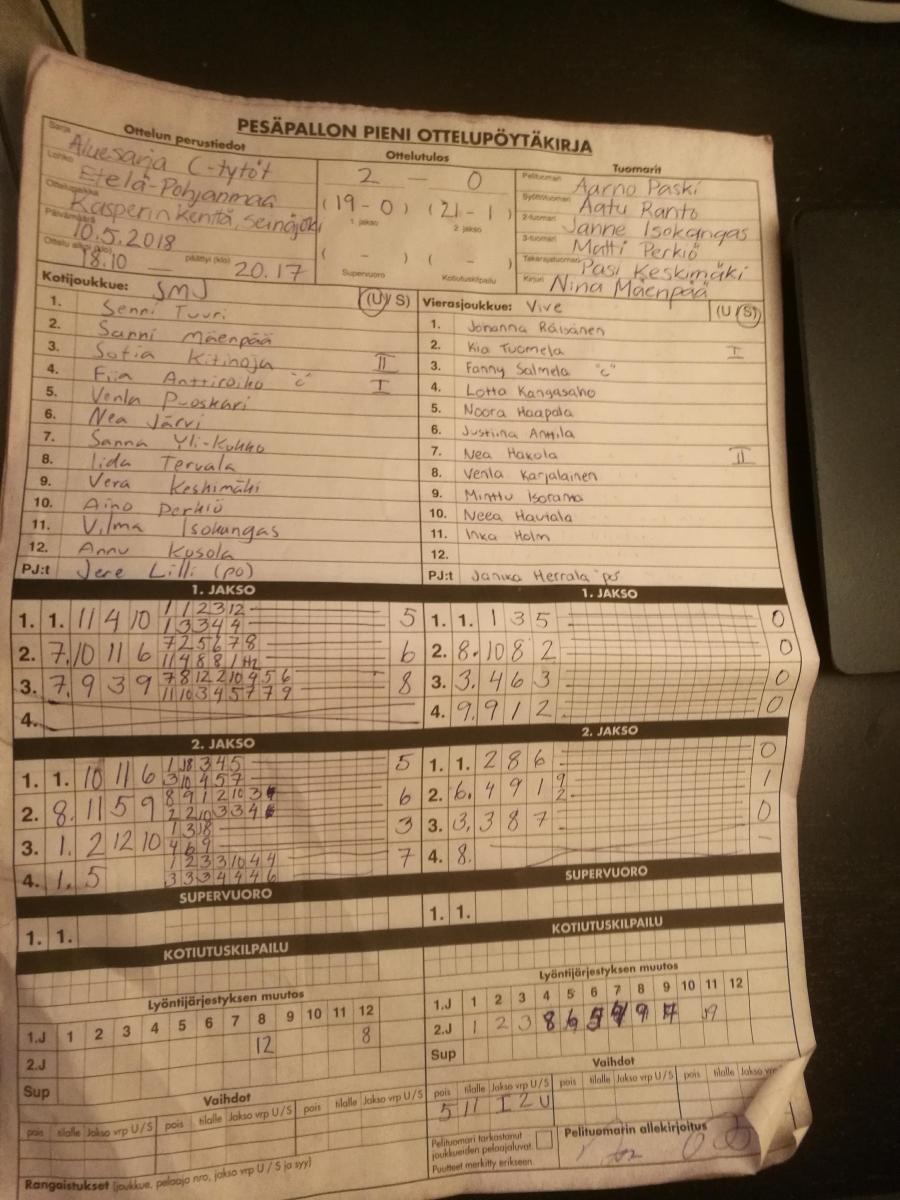 PESÄPALLON PIENI OTTELUPÖYTÄKIRJA
Ottelun perustiedot
Sarja Aluesarja C-tytöt
Lohko Etelä-Pohjanmaa
Ottelupaikka Kasperin kenttä, Seinäjoki
Päivämäärä 10.5.2018
Ottelu alkoi (klo) 18.10 — päättyi (klo) 20.17
Ottelutulos
2 — 0
(19 - 0) (21 - 1)
1. jakso 2. jakso
( - ) ( - )
Supervuoro Kotiutuskilpailu
Tuomarit
Pelituomari Aarno Paski
Syöttötuomari Aatu Ranto
2-tuomari Janne Isokangas
3-tuomari Matti Perkiö
Takarajatuomari Pasi Keskimäki
Kirjuri Nina Mäenpää
Kotijoukkue: SMJ (U/S)
1. Senni Tuuri
2. Sanni Mäenpää
3. Sofia Kitinoja II
4. Fiia Anttiroiko "c" I
5. Venla Puoskari
6. Nea Järvi
7. Sanna Yli-Kuhko
8. Iida Tervala
9. Vera Keskimäki
10. Aino Perkiö
11. Vilma Isokangas
12. Annu Kusola
PJ:t Jere Lilli (po)
Vierasjoukkue: Vive (U/S)
1. Johanna Räisänen
2. Kia Tuomela I
3. Fanny Salmela "c"
4. Lotta Kangasaho
5. Noora Haapala
6. Justiina Anttila
7. Nea Hakola II
8. Venla Karjalainen
9. Minttu Isorama
10. Neea Hautala
11. Inka Holm
12.
PJ:t Janika Herrala "po"
1. JAKSO
1. 1. 11 4 10 1 1 2 3 12 5
1 3 3 4 4
2. 7. 10 11 6 7 2 5 6 7 8 6
11 4 8 8 1
3. 7. 9 3 9 7 8 12 2 10 4 5 6 8
11 10 3 4 5 7 7 9
4.
1. JAKSO
1. 1. 1 3 5 0
2. 8. 10 8 2 0
3. 3. 4 6 3 0
4. 9. 9 1 2 0
2. JAKSO
1. 1. 10 11 6 1 3 4 5 5
3 10 4 5 7
2. 8. 11 5 9 8 9 1 2 10 3 6
2 2 10 3 3 4
3. 1. 2 12 10 1 3 8 3
4 6 9
4. 1. 5 1 2 3 3 10 4 4 7
3 3 3 4 4 4 6
2. JAKSO
1. 1. 2 8 6 0
2. 6. 4 9 1 9 1
2
3. 3. 3 8 7 0
4. 8. –
SUPERVUORO
1. 1.
SUPERVUORO
1. 1.
KOTIUTUSKILPAILU
KOTIUTUSKILPAILU
Lyöntijärjestyksen muutos
1.J 1 2 3 4 5 6 7 8 9 10 11 12
2.J 12 8
Sup
Lyöntijärjestyksen muutos
1.J 1 2 3 4 5 6 7 8 9 10 11 12
2.J 1 2 3 8 6
Sup
Vaihdot
pois tilalle Jakso vrp U/S pois tilalle Jakso vrp U/S pois tilalle Jakso vrp U/S
Vaihdot
pois tilalle Jakso vrp U/S pois tilalle Jakso vrp U/S pois tilalle Jakso vrp
5 11 I 2 U
Pelituomari tarkastanut
joukkueiden pelaajaluvat.
Puutteet merkitty erikseen.
Pelituomarin allekirjoitus
Rangaistukset (joukkue, pelaaja nro, jakso vrp U / S ja syy)